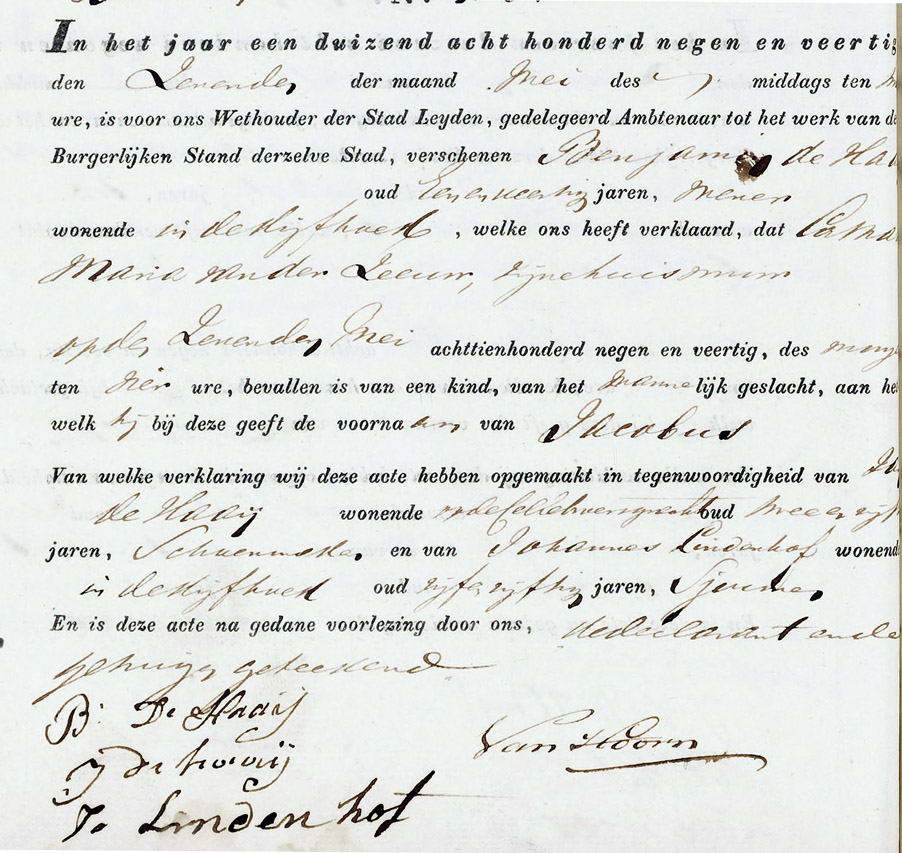 In het jaar een duizend acht honderd negen en veertig
den Zevenden der maand Mei des middags ten
ure, is voor ons Wethouder der Stad Leyden, gedelegeerd Ambtenaar tot het werk van de
Burgerlijken Stand derzelve Stad, verschenen Benjamin de Haa
oud jaren, Wever
wonende in de Kijfhoek, welke ons heeft verklaard, dat Catha
Maria van der Leeuw, zijne huisvrouw
op den Zevenden Mei achttienhonderd negen en veertig, des morg
ten vier ure, bevallen is van een kind, van het mannelijk geslacht, aan het
welk hij bij deze geeft de voornaam van Jacobus
Van welke verklaring wij deze acte hebben opgemaakt in tegenwoordigheid van
de Haaij wonende op de oud twee en
jaren, Schoenmaker en van Johannes Lindenhof wonend
in de Kijfhoek oud vijf en vijftig jaren, Sjouwer
En is deze acte na gedane voorlezing door ons, declarant en de
getuigen geteekend
B. De Haaij
J de Haaij
Van Hoorn
J. Lindenhof